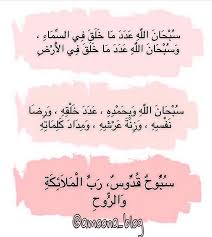 سُبْحَانَ اللَّهِ عَدَدَ مَا خَلَقَ فِي السَّمَاءِ ،
وَسُبْحَانَ اللَّهِ عَدَدَ مَا خَلَقَ فِي الْأَرْضِ
سُبْحَانَ اللَّهِ وَبِحَمْدِهِ ، عَدَدَ خَلْقِهِ ، وَرِضَا
نَفْسِهِ ، وَزِنَةَ عَرْشِهِ ، وَمِدَادَ كَلِمَاتِهِ
سُبُّوحٌ قُدُّوسٌ، رَبُّ الْمَلَائِكَةِ
وَالرُّوحِ
@amoona_blog